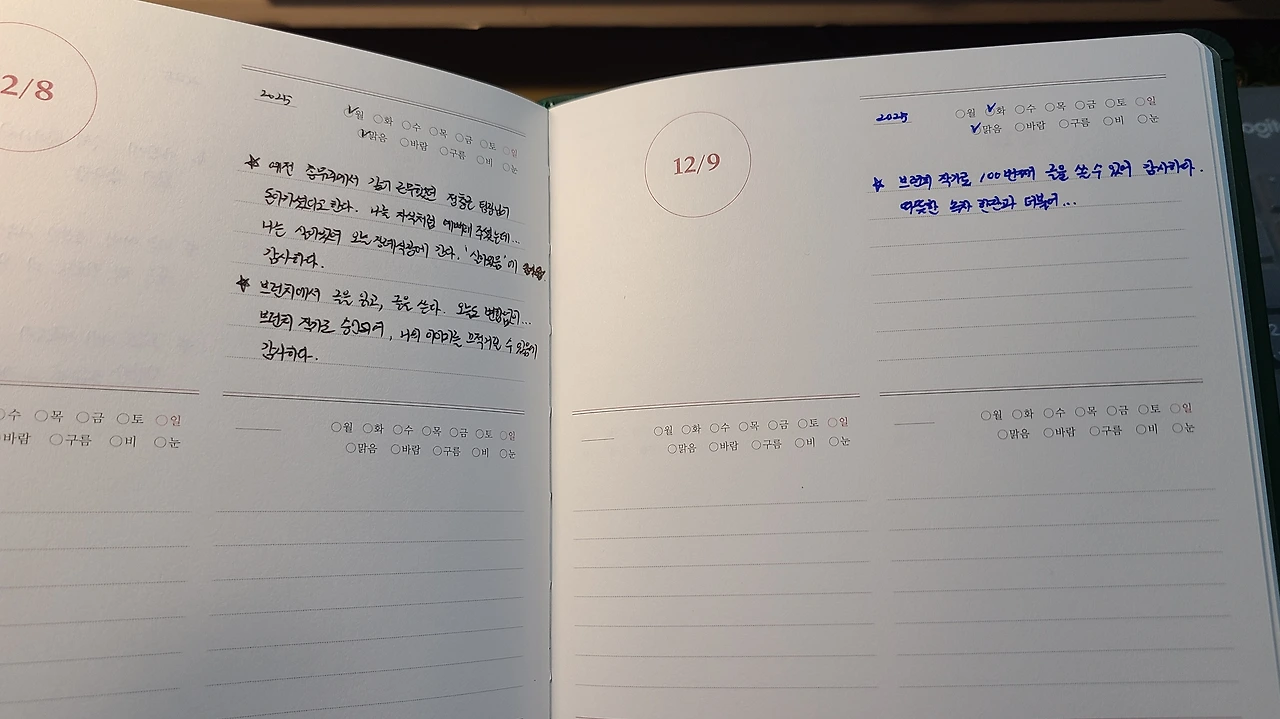 2/8
2025
월 화 수 목 금 토 일
맑음 바람 구름 비 눈
★ 예전 에서 같이 근무했던 팀장님이
돌아가셨다고 한다. 나를 자식처럼 예뻐해 주셨는데...
나는 살아남아 오늘 장례식장에 간다. '살아있음'에
감사하다.
★ 브런치에서 글을 읽고, 글을 쓴다. 오늘도 변함없이...
브런치 작가로 승인되어, 나의 이야기를 끄적거릴 수 있음에
감사하다.
수 목 금 토 일
바람 구름 비 눈
월 화 수 목 금 토 일
맑음 바람 구름 비 눈
12/9
2025
월 화 수 목 금 토 일
맑음 바람 구름 비 눈
★ 브런치 작가로 100번째 글을 쓸 수 있어 감사하다.
따뜻한 녹차 한잔과 더불어...
월 화 수 목 금 토 일
맑음 바람 구름 비 눈
월 화 수 목 금 토 일
맑음 바람 구름 비 눈